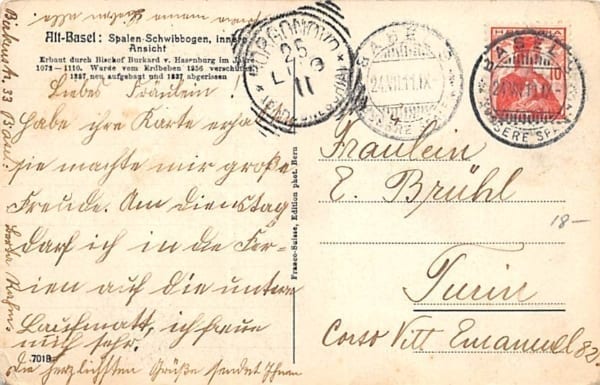 Alt-Basel: Spalen-Schwibbogen, innere
Ansicht
Erbaut durch Bischof Burkard v. Hasenburg im Jahre
1072—1110. Wurde vom Erdbeben 1356 verschüttet
1357 neu aufgebaut und 1837 abgerissen
Liebes Fräulein
habe ihre Karte erhal
sie machte mir große
Freude. Am Dienstag
darf ich in die Fer-
ien auf die untere
Laufmatt, ich freue
mich sehr.
die herzlichsten Grüße sendet Ihnen
meine Mutter
33 Basel.
7019
Franco-Suisse, Edition phot. Bern
BORGONOVO
25
11
BASEL
24.VII.11.IX-
ÄUSSERE SP
HELVETIA
10
BASEL
24.VII.11.IX-
ÄUSSERE SP
Fräulein
E. Brühl
Turin
Corso Vitt Emanuel 82
18-